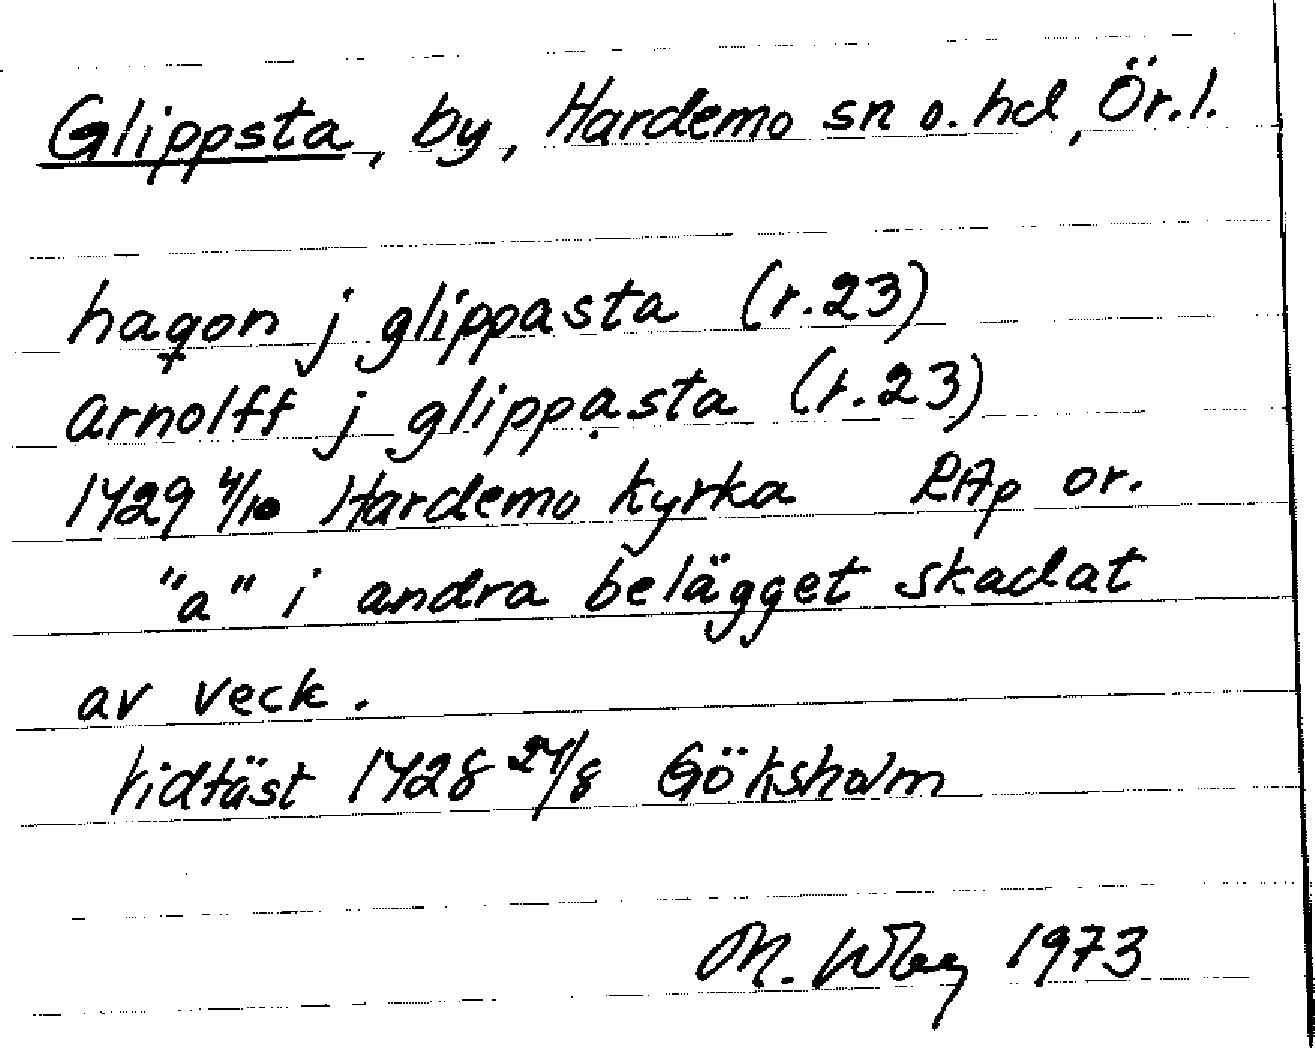 Glippsta, by, Hardemo sn o. hd, Ör.l.
haqon j glippasta (r.23)
arnolff j glippasta (r.23)
1429 4/10 Hardemo kyrka RAp or.
"a" i andra belägget skadat
av veck.
Vidfäst 1428 24/8 Göksholm
M. 1973